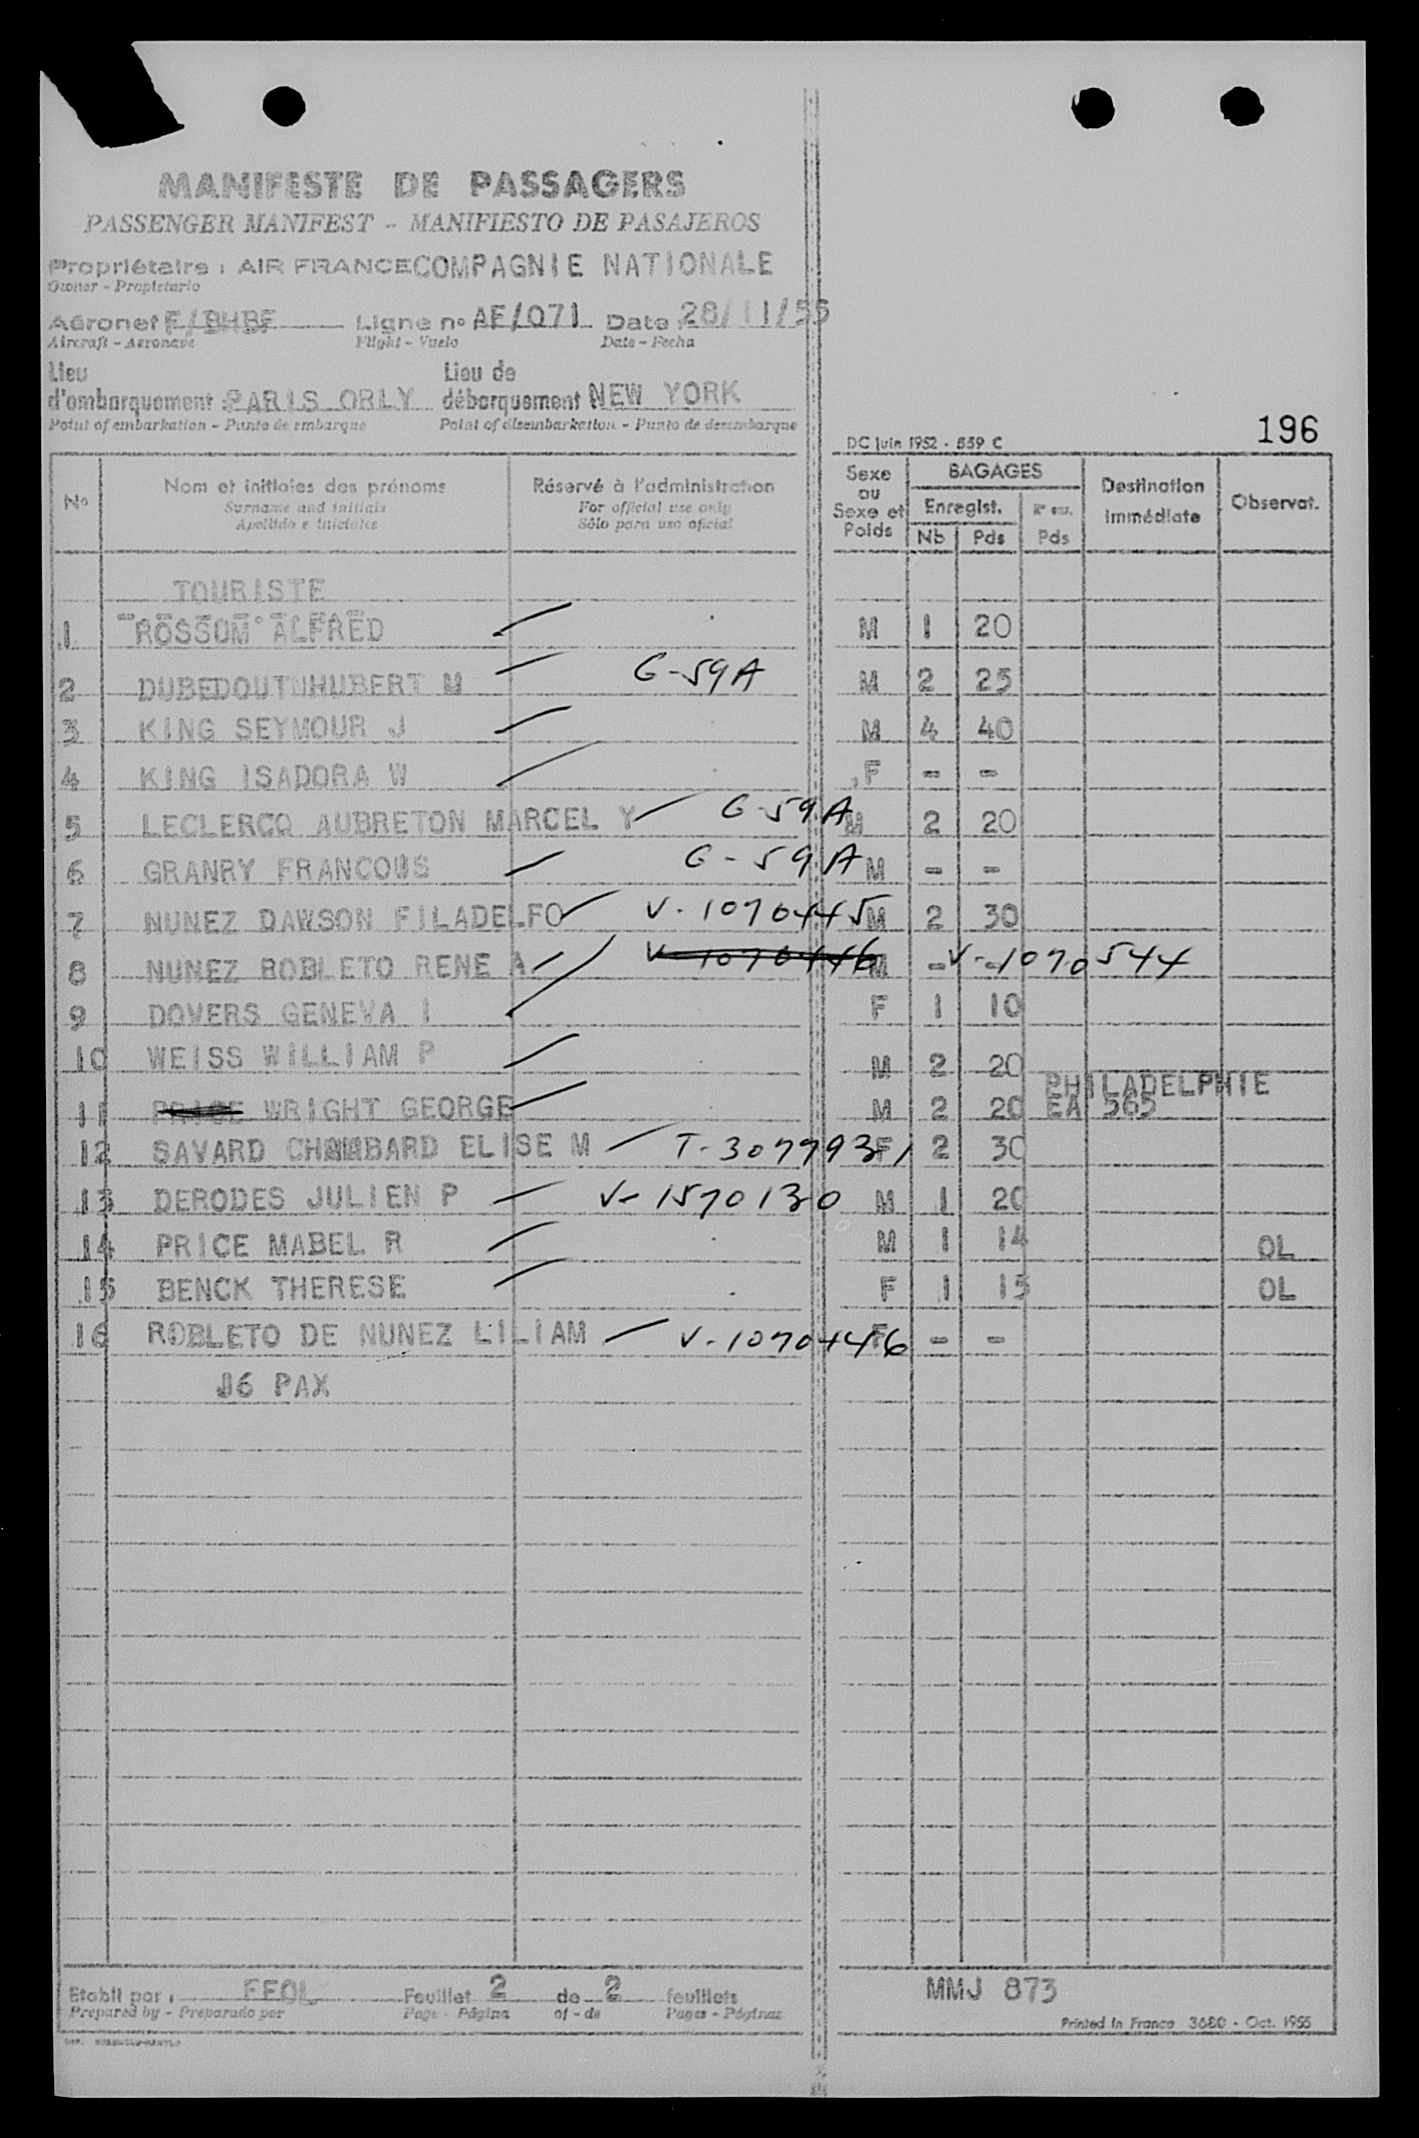 MANIFESTE DE PASSAGERS
PASSENGER MANIFEST - MANIFIESTO DE PASAJEROS
Propriétaire : AIR FRANCE COMPAGNIE NATIONALE
Owner - Propietario
Aéronef F/BHBF Ligne no AF/071 Date 28/11/55
Aircraft - Aeronave Flight - Vuelo Date - Fecha
Lieu d'embarquement PARIS ORLY Lieu de débarquement NEW YORK
Point of embarkation - Punto de embarque Point of disembarkation - Punto de desembarque
DC juin 1952 - 559 C 196
No Nom et initiales des prénoms Réservé à l'administration Sexe ou Sexe et Poids BAGAGES Destination immédiate Observat.
Surname and initials For official use only Enregist.
Apellido e iniciales Sólo para uso oficial Nb Pds Pds
TOURISTE
1 ROSSOM ALFRED M 1 20
2 DUBEDOUT HUBERT M G-59A M 2 25
3 KING SEYMOUR J M 4 40
4 KING ISADORA W F - -
5 LECLERCQ AUBRETON MARCEL Y G-59A M 2 20
6 GRANRY FRANCOUS G-59A M - -
7 NUNEZ DAWSON FILADELFO V-1070445 M 2 30
8 NUNEZ ROBLETO RENE A V-1070446 M - - V-1070544
9 DOVERS GENEVA I F 1 10
10 WEISS WILLIAM P M 2 20
PHILADELPHIE
11 PRICE WRIGHT GEORGE M 2 20 EA 565
12 SAVARD CHAMBARD ELISE M T-3077931 F 2 30
13 DERODES JULIEN P V-1570130 M 1 20
14 PRICE MABEL R M 1 14 OL
15 BENCK THERESE F 1 15 OL
16 ROBLETO DE NUNEZ LILIAM V-1070446 F - -
16 PAX
Etabli par : FFOL Feuillet 2 de 2 feuillets MMJ 873
Prepared by - Preparado por Page - Página of - de Pages - Páginas
Printed in France 3680 - Oct. 1955